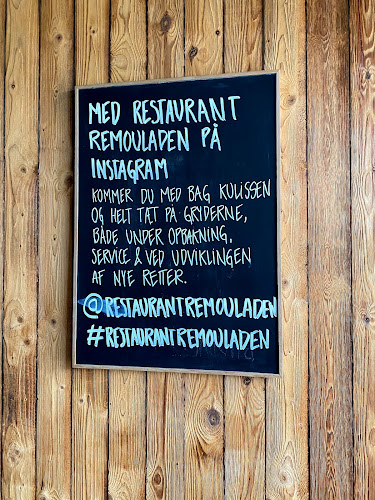 MED RESTAURANT
REMOULADEN PÅ
INSTAGRAM
KOMMER DU MED BAG KULISSEN
OG HELT TÆT PÅ GRYDERNE,
BÅDE UNDER OPBAKNING,
SERVICE & VED UDVIKLINGEN
AF NYE RETTER.
@RESTAURANTREMOULADEN
#RESTAURANTREMOULADEN